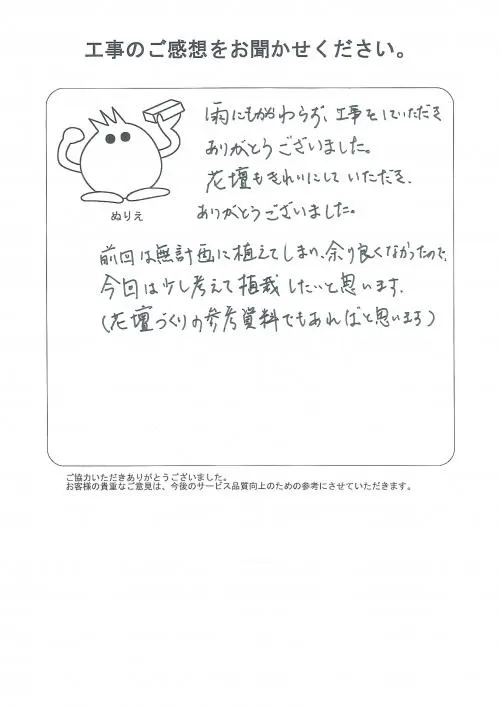 工事のご感想をお聞かせください。
雨にもかかわらず、工事をしていただき
ありがとうございました。
花壇もきれいにして いただき、
ありがとうございました。
ぬりえ
前回は無計画に植えてしまい、余り良くなかったので、
今回は少し考えて植栽したいと思います。
(花壇づくりの参考資料でもあればと思います)
ご協力いただきありがとうございました。
お客様の貴重なご意見は、今後のサービス品質向上のための参考にさせていただきます。